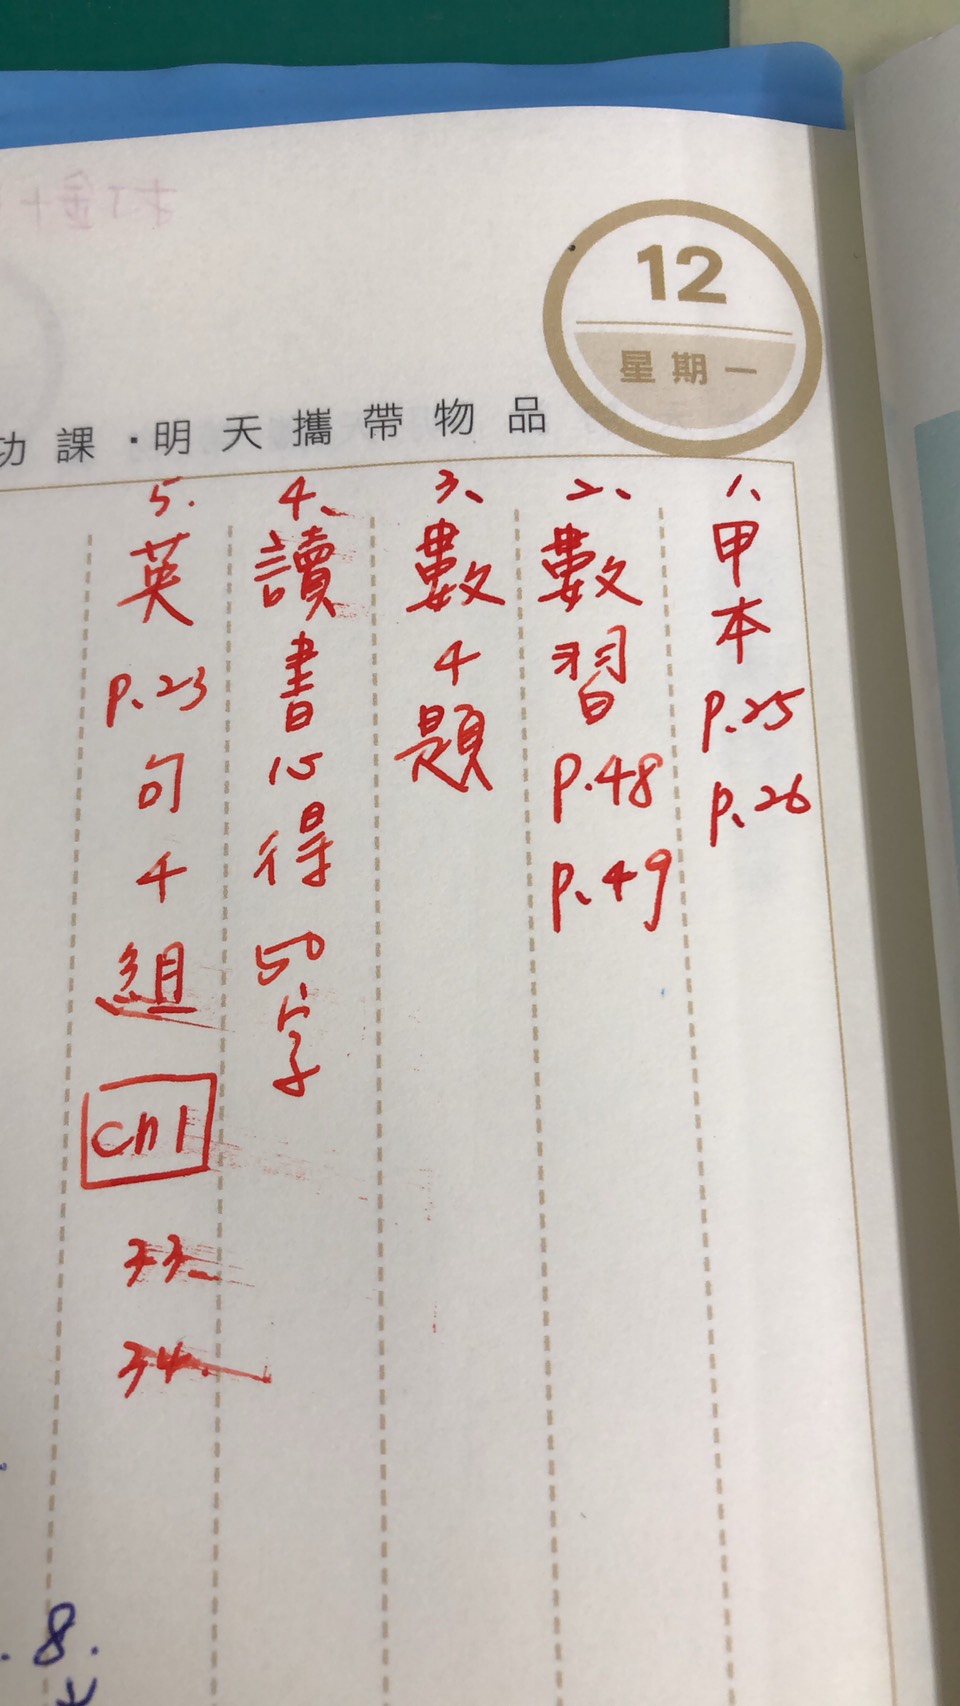 12
星期一
功課・明天攜帶物品
1、甲本 p.25 p.26
2、數習 p.48 p.49
3、數4題
4、讀書心得50字
5.英 p.23 句4組 Ch1 33、34.
8.